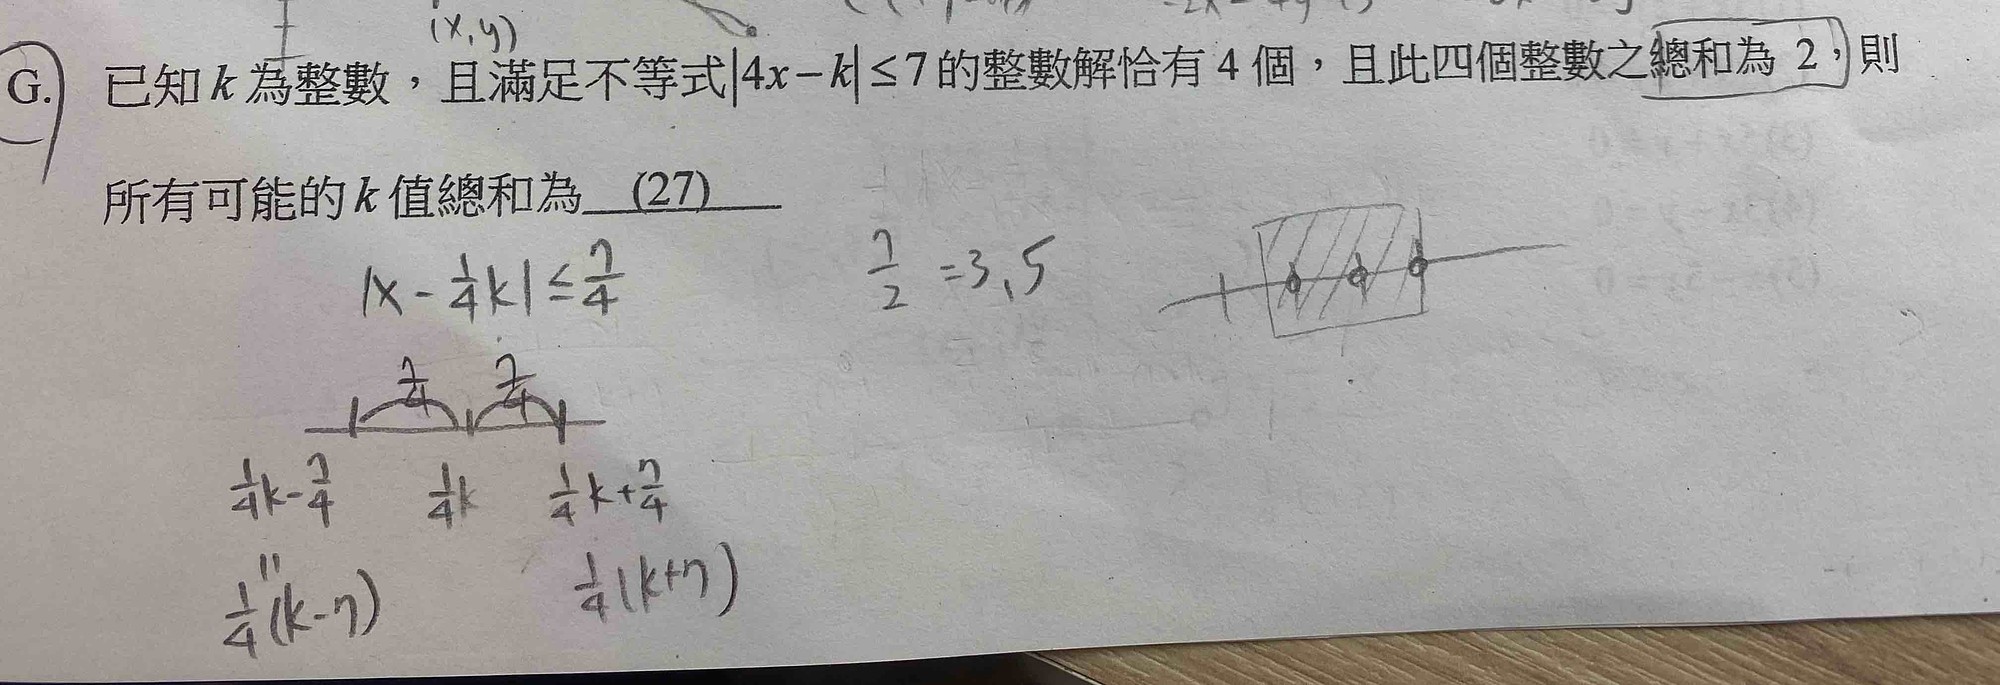 (x,y)
G. 已知 k 為整數,且滿足不等式|4x−k|≤7的整數解恰有 4 個,且此四個整數之總和為 2,則
所有可能的 k 值總和為 (27)
|x-1/4k|≤7/4
7/2 =3,5
7/4 7/4
1/4k-7/4 1/4k 1/4k+7/4
"
1/4(k-7) 1/4(k+7)